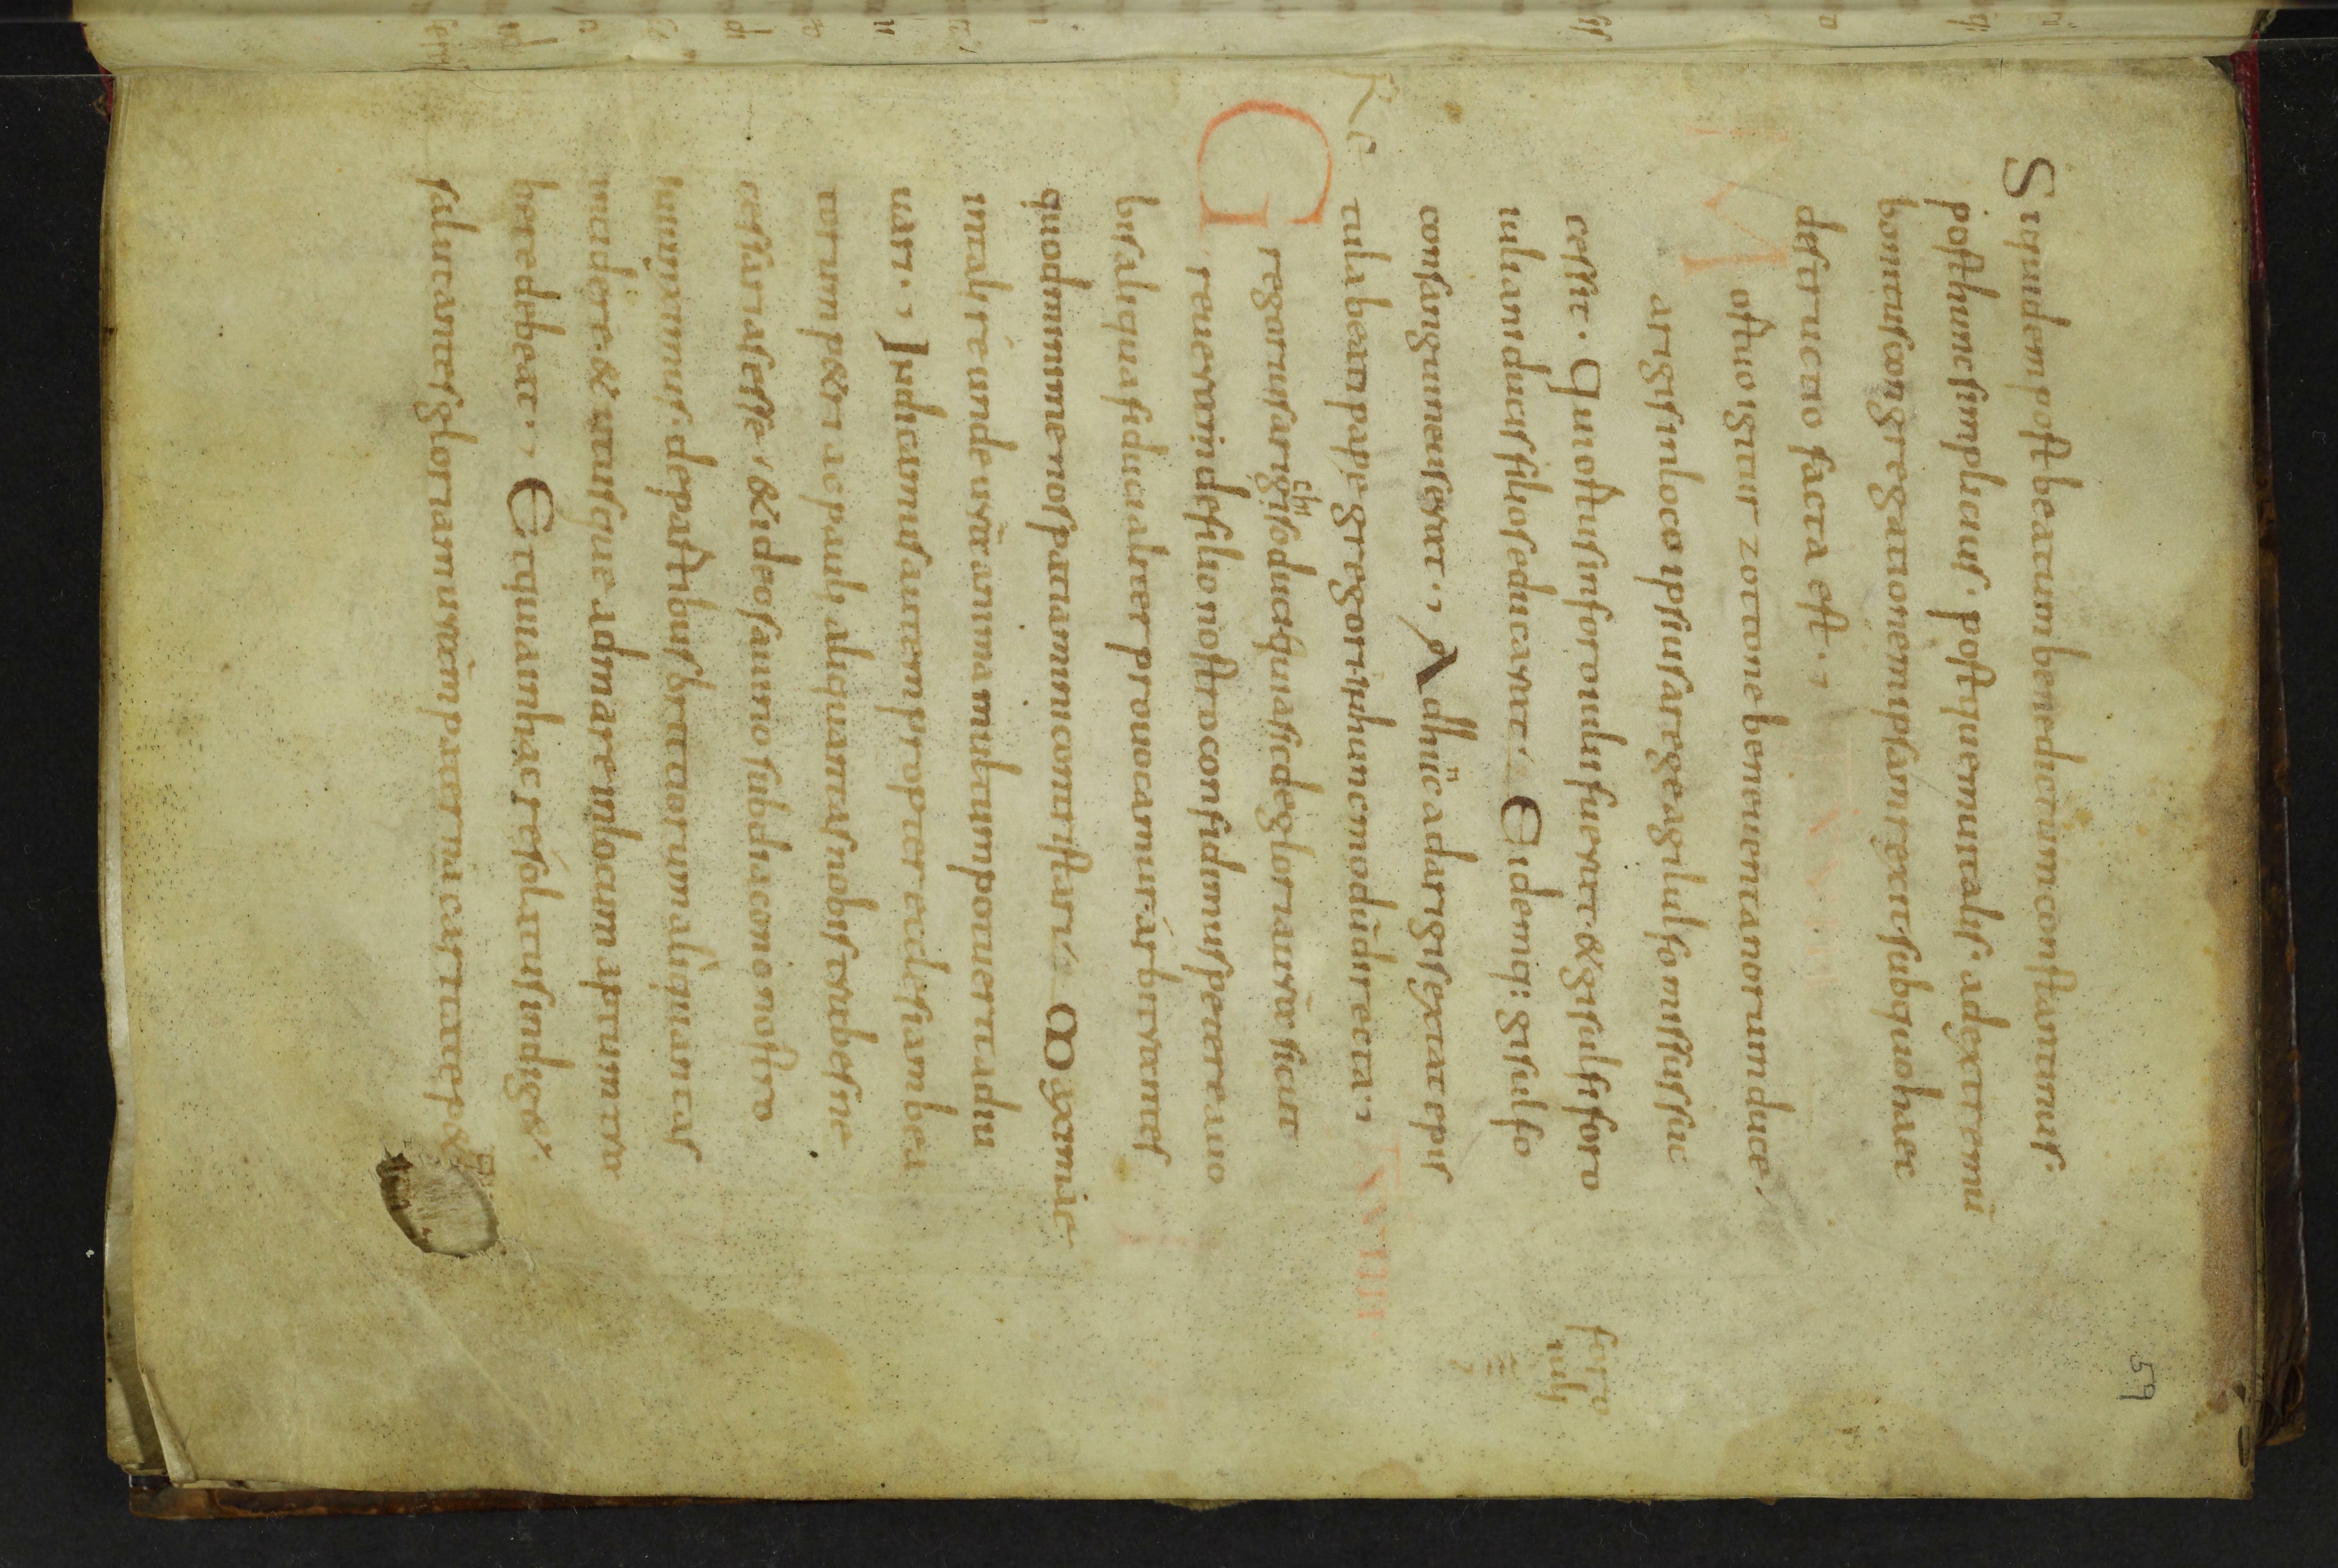 59
Siquidem post beatum benedictum constantinus.
post hunc simplicius. post quem uitalis. ad extremũ
bonitus congregationem ipsam rexit. sub quo haec
destructio facta est.
Mortuo igitur zottone beneuentanorum duce,
arigis in loco ipsius a rege agilulfo missus suc
cessit. Qui ortus in foroiuli fuerat. & gisulfi foro
iuliani ducis filios educarat, Eidemq; gisulfo
consanguineus erat. Ad hũc adarigis extat epis
tula beati pape gregorii in hunc modũ directa.
XVIIII
Gregorius arigiso duci. Quia sic de gloria urã sicut
reuera in de filio nostro confidimus. petere a uo
bis aliqua fiducialiter prouocamur, arbitrantes
quod minime nos patiamini contristari, Maxime
in tali re unde urã anima multum poterit adiu
uari. Indicamus autem propter ecclesiam bea
torum petri ac pauli aliquantas nobis trabes ne
cessarias esse, & ideo sauino subdiacono nostro
iniunximus. de partibus brittiorum aliquantas
incidere. & usque ad mare in locum aptum tra
here debeat. Et quia in hac re solatiis indiget.
salutantes gloriam urãm paterna caritate pe